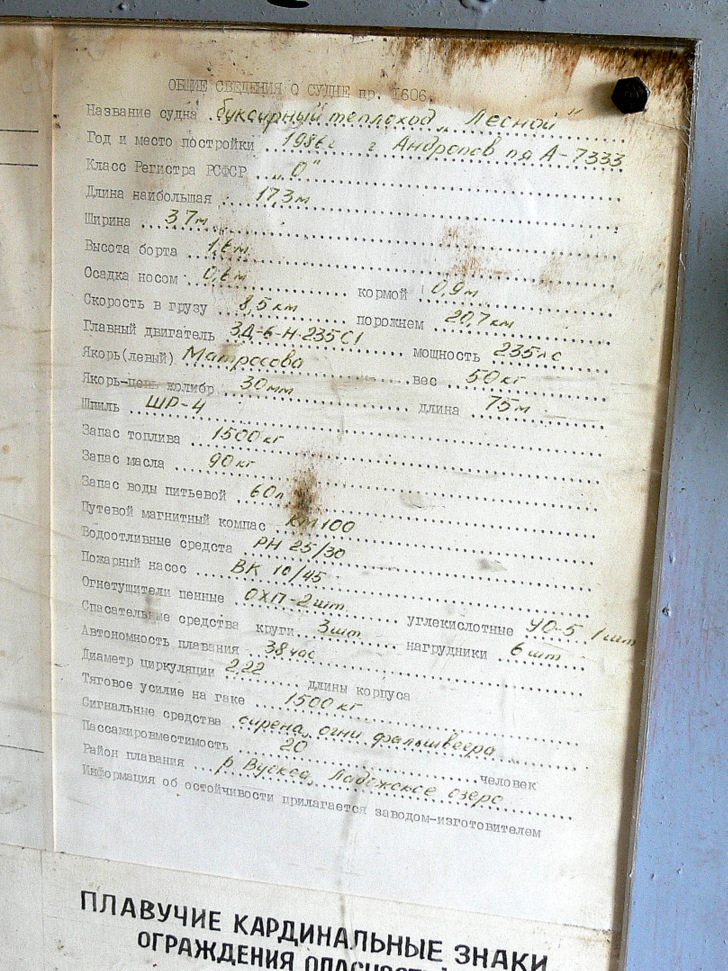 ОБЩИЕ СВЕДЕНИЯ О СУДНЕ пр. 1606.
Название судна буксирный теплоход „Лесной"
Год и место постройки 1986г г Андропов пя А-7333
Класс Регистра РСФСР „О"
Длина наибольшая 17,3м
Ширина 3,7м
Высота борта 1,6м
Осадка носом 0,6м кормой 0,9м
Скорость в грузу 8,5 км порожнем 20,7км
Главный двигатель 3Д-6-Н-235С1 мощность 235лс
Якорь(левый) Матросова вес 50кг
Якорь-цепь колибр 30мм длина 75м
Шпиль ШР-4
Запас топлива 1500кг
Запас масла 90кг
Запас воды питьевой 60л
Путевой магнитный компас КМ100
Водоотливные средста РН 25/30
Пожарный насос ВК 10/45
Огнетушители пенные ОХП-2шт. углекислотные УО-5 1шт
Спасательные средства круги 3шт. нагрудники 6шт.
Автономность плавания 38час
Диаметр циркуляции 2,22 длины корпуса
Тяговое усилие на гаке 1500кг
Сигнальные средства сирена, огни, фальшвеера
Пассажировместимость 20 человек
Район плавания р Вуокса, Ладожское озеро
Информация об остойчивости прилагается заводом-изготовителем
ПЛАВУЧИЕ КАРДИНАЛЬНЫЕ ЗНАКИ
ОГРАЖДЕНИЯ